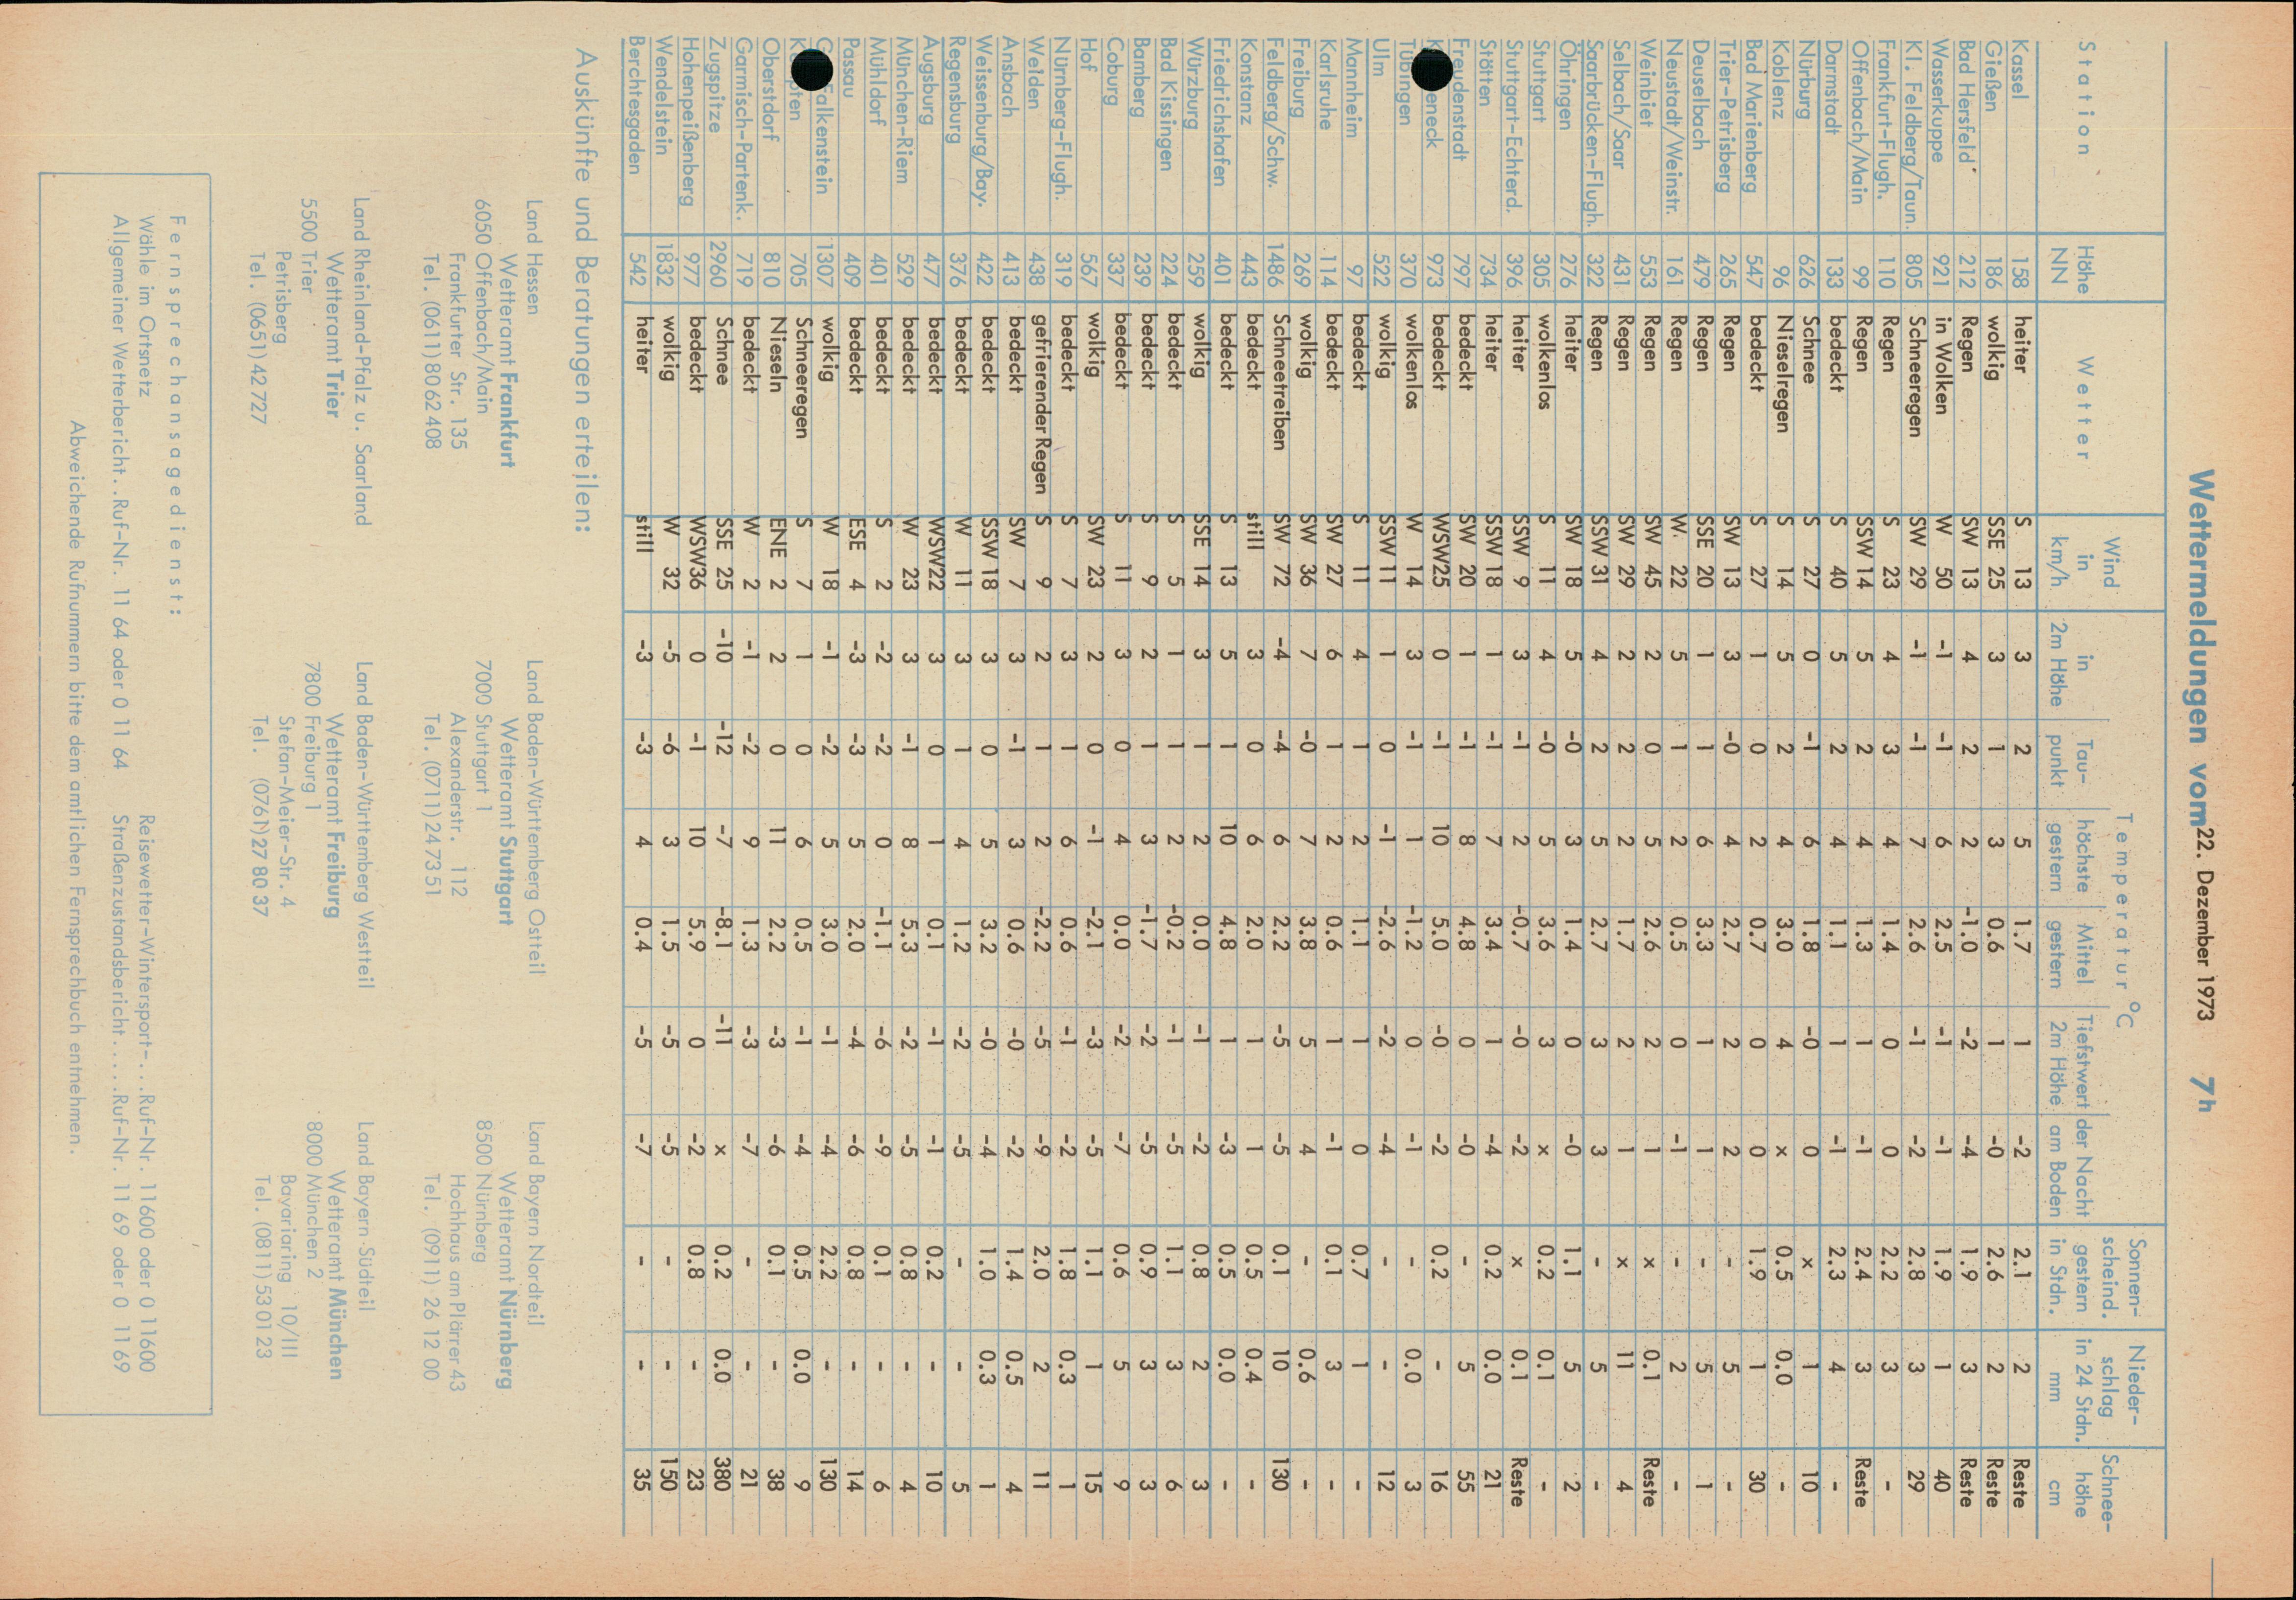 Wettermeldungen vom 22. Dezember 1973 7h
Station Höhe NN Wetter Wind in km/h Temperatur °C in 2m Höhe Tau-punkt höchste gestern Mittel gestern Tiefstwert der Nacht 2m Höhe am Boden Sonnen-scheind. gestern in Stdn. Nieder-schlag in 24 Stdn. mm Schnee-höhe cm
Kassel 158 heiter S 13 3 2 5 1.7 1 -2 2.1 2 Reste
Gießen 186 wolkig SSE 25 3 1 3 0.6 1 -0 2.6 2 Reste
Bad Hersfeld 212 Regen SW 13 4 2 2 -1.0 -2 -4 1.9 3 Reste
Wasserkuppe 921 in Wolken W 50 -1 -1 6 2.5 -1 -1 1.9 1 40
Kl. Feldberg/Taun. 805 Schneeregen SW 29 -1 -1 7 2.6 -1 -2 2.8 3 29
Frankfurt-Flugh. 110 Regen S 23 4 3 4 1.4 0 0 2.2 3 -
Offenbach/Main 99 Regen SSW 14 5 2 4 1.3 1 -1 2.4 3 Reste
Darmstadt 133 bedeckt S 40 5 2 4 1.1 1 -1 2.3 4 -
Nürburg 626 Schnee S 27 0 -1 6 1.8 -0 0 x 1 10
Koblenz 96 Nieselregen S 14 5 2 4 3.0 4 x 0.5 0.0 -
Bad Marienberg 547 bedeckt S 27 1 0 2 0.7 0 0 1.9 1 30
Trier-Petrisberg 265 Regen SW 13 3 -0 4 2.7 2 2 - 5 -
Deuselbach 479 Regen SSE 20 1 1 6 3.3 1 1 - 5 1
Neustadt/Weinstr. 161 Regen W. 22 5 1 2 0.5 0 -1 - 2 -
Weinbiet 553 Regen SW 45 2 0 5 2.6 2 1 x 0.1 Reste
Selbach/Saar 431 Regen SW 29 2 2 2 1.7 2 1 x 11 4
Saarbrücken-Flugh. 322 Regen SSW 31 4 2 5 2.7 3 3 - 5 -
Öhringen 276 heiter SW 18 5 -0 3 1.4 0 -0 1.1 5 2
Stuttgart 305 wolkenlos S 11 4 -0 5 3.6 3 x 0.2 0.1 -
Stuttgart-Echterd. 396 heiter SSW 9 3 -1 2 -0.7 -0 -2 x 0.1 Reste
Stötten 734 heiter SSW 18 1 -1 7 3.4 1 -4 0.2 0.0 21
Freudenstadt 797 bedeckt SW 20 1 -1 8 4.8 0 -0 - 5 55
K eneck 973 bedeckt WSW25 0 -1 10 5.0 -0 -2 0.2 - 16
Tübingen 370 wolkenlos W 14 3 -1 1 -1.2 0 -1 - 0.0 3
Ulm 522 wolkig SSW 11 1 0 -1 -2.6 -2 -4 - - 12
Mannheim 97 bedeckt S 11 4 1 2 1.1 1 0 0.7 1 -
Karlsruhe 114 bedeckt SW 27 6 1 2 0.6 1 -1 0.1 3 -
Freiburg 269 wolkig SW 36 7 -0 7 3.8 5 4 - 0.6 -
Feldberg/Schw. 1486 Schneetreiben SW 72 -4 -4 6 2.2 -5 -5 0.1 10 130
Konstanz 443 bedeckt still 3 0 6 2.0 1 1 0.5 0.4 -
Friedrichshafen 401 bedeckt S 13 5 1 10 4.8 1 -3 0.5 0.0 -
Würzburg 259 wolkig SSE 14 3 1 2 0.0 -1 -2 0.8 2 3
Bad Kissingen 224 bedeckt S 5 1 1 2 -0.2 -1 -5 1.1 3 6
Bamberg 239 bedeckt S 9 2 1 3 -1.7 -2 -5 0.9 3 3
Coburg 337 bedeckt S 11 3 0 4 0.0 -2 -7 0.6 5 9
Hof 567 wolkig SW 23 2 0 -1 -2.1 -3 -5 1.1 1 15
Nürnberg-Flugh. 319 bedeckt S 7 3 1 6 0.6 -1 -2 1.8 0.3 1
Weiden 438 gefrierender Regen S 9 2 1 2 -2.2 -5 -9 2.0 2 11
Ansbach 413 bedeckt SW 7 3 -1 3 0.6 -0 -2 1.4 0.5 4
Weissenburg/Bay. 422 bedeckt SSW 18 3 0 5 3.2 -0 -4 1.0 0.3 1
Regensburg 376 bedeckt W 11 3 1 4 1.2 -2 -5 - - 5
Augsburg 477 bedeckt WSW22 3 0 1 0.1 -1 -1 0.2 - 10
München-Riem 529 bedeckt W 23 3 -1 8 5.3 -2 -5 0.8 - 4
Mühldorf 401 bedeckt S 2 -2 -2 0 -1.1 -6 -9 0.1 - 6
Passau 409 bedeckt ESE 4 -3 -3 5 2.0 -4 -6 0.8 - 14
G Falkenstein 1307 wolkig W 18 -1 -2 5 3.0 -1 -4 2.2 - 130
K pten 705 Schneeregen S 7 1 0 6 0.5 -1 -4 0.5 0.0 9
Oberstdorf 810 Nieseln ENE 2 2 0 11 2.2 -3 -6 0.1 - 38
Garmisch-Partenk. 719 bedeckt W 2 -1 -2 9 1.3 -3 -7 - - 21
Zugspitze 2960 Schnee SSE 25 -10 -12 -7 -8.1 -11 x 0.2 0.0 380
Hohenpeißenberg 977 bedeckt WSW36 0 -1 10 5.9 0 -2 0.8 - 23
Wendelstein 1832 wolkig W 32 -5 -6 3 1.5 -5 -5 - - 150
Berchtesgaden 542 heiter still -3 -3 4 0.4 -5 -7 - - 35
Auskünfte und Beratungen erteilen:
Land Hessen
Wetteramt Frankfurt
6050 Offenbach/Main
Frankfurter Str. 135
Tel. (0611) 80 62 408
Land Baden-Württemberg Ostteil
Wetteramt Stuttgart
7000 Stuttgart 1
Alexanderstr. 112
Tel. (0711) 24 73 51
Land Bayern Nordteil
Wetteramt Nürnberg
8500 Nürnberg
Hochhaus am Plärrer 43
Tel. (0911) 26 12 00
Land Rheinland-Pfalz u. Saarland
Wetteramt Trier
5500 Trier
Petrisberg
Tel. (0651) 42 727
Land Baden-Württemberg Westteil
Wetteramt Freiburg
7800 Freiburg 1
Stefan-Meier-Str. 4
Tel. (0761) 27 80 37
Land Bayern Südteil
Wetteramt München
8000 München 2
Bavariaring 10/III
Tel. (0811) 53 01 23
Fernsprechansagedienst:
Wähle im Ortsnetz Reisewetter-Wintersport-...Ruf-Nr. 11600 oder 0 11600
Allgemeiner Wetterbericht..Ruf-Nr. 11 64 oder 0 11 64 Straßenzustandsbericht.....Ruf-Nr. 11 69 oder 0 11 69
Abweichende Rufnummern bitte dem amtlichen Fernsprechbuch entnehmen.